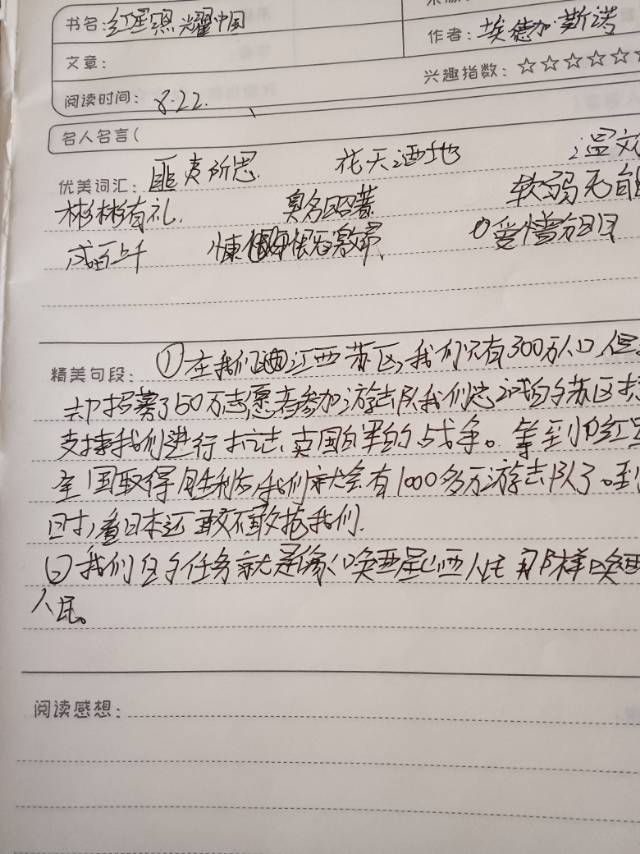 书名：红星照耀中国
作者：埃德加·斯诺
文章：
兴趣指数：☆☆☆☆☆☆
阅读时间：8.22.
名人名言（
优美词汇：匪夷所思 花天酒地 温文
彬彬有礼 臭名昭著 软弱无能
成百上千
精美句段：①在我们江西苏区，我们只有300万人口，但
却招募了50万志愿者参加游击队我们忠诚的苏区
支持我们进行抗击白军的战争。等到红军
全国取得胜利后，我们就会有1000多万游击队了。到
时，看日本还敢不敢抢我们.
②我们的任务就是像唤醒山西人民那样唤
人民。
阅读感想：